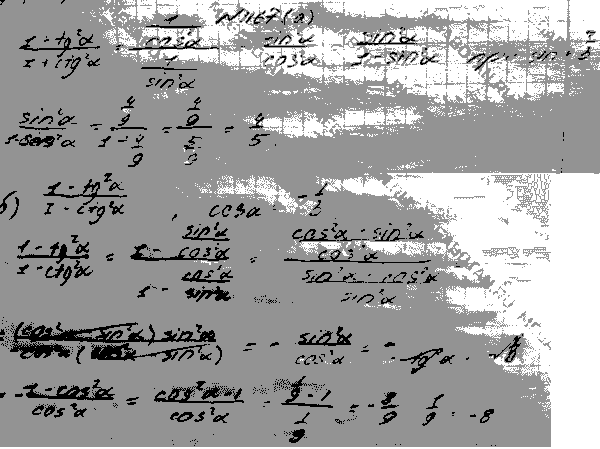 N1167(а)
1 - tg²α / 1 + ctg²α = 1/cos²α / 1/sin²α = sin²α / cos²α = sin²α / 1 - sin²α
sin²α / 1 - sin²α = 4/9 / 1 - 4/9 = 4/9 / 5/9 = 4/5
б) 1 - tg²α / 1 - ctg²α , cos α = 1/3
1 - tg²α / 1 - ctg²α = 1 - sin²α/cos²α / 1 - cos²α/sin²α = cos²α - sin²α / cos²α / sin²α - cos²α / sin²α
= (cos²α - sin²α) sin²α / -cos²α (cos²α - sin²α) = - sin²α / cos²α = - tg²α
= - 1 - cos²α / cos²α = cos²α - 1 / cos²α = 1/9 - 1 / 1/9 = - 8/9 : 1/9 = -8